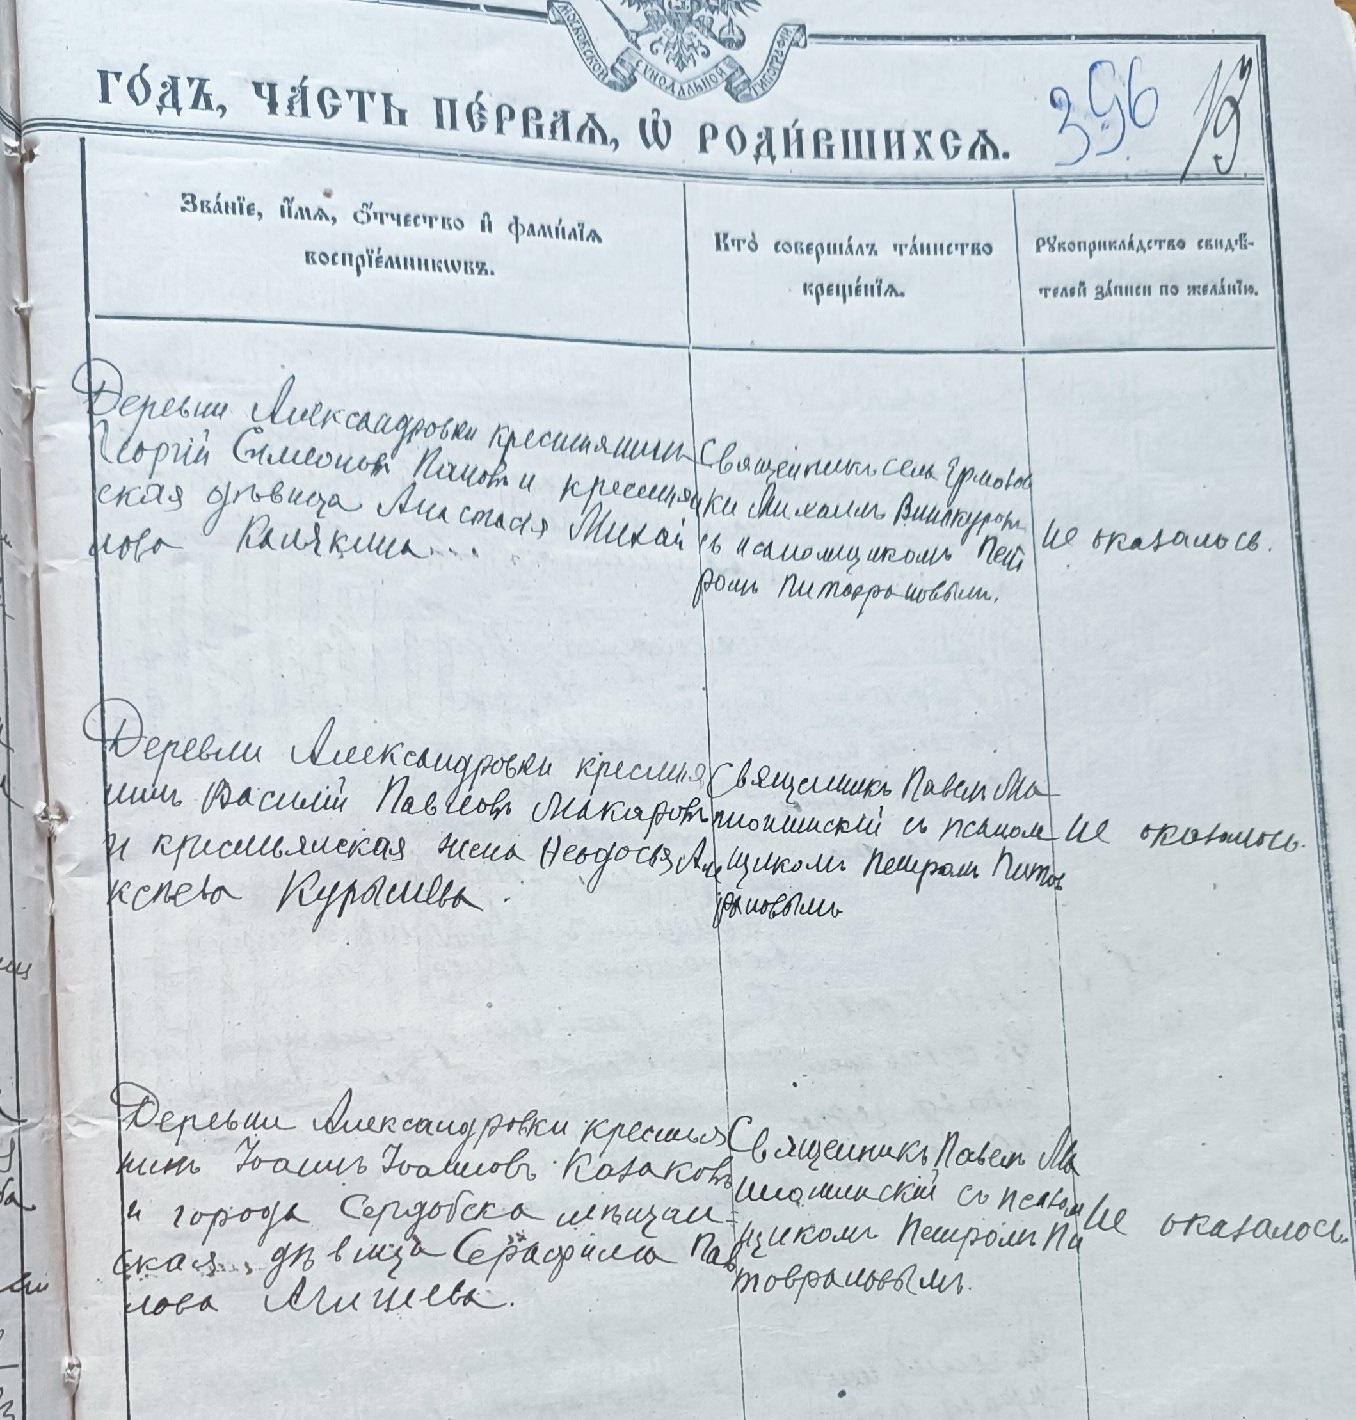 МОСКОВСКОЙ СѴНОДАЛЬНОЙ ТИПОГРАФІИ
ГО́ДЪ, ЧА́СТЬ ПЕ́РВАѦ, Ѡ҆ РОДИ́ВШИХСѦ.
396
Зва́нїе, и҆́мѧ, ѻ҆́тчество и҆ фами́лїѧ
воспрїе́мникѡвъ.
Кто̀ соверша́лъ та́инство
креще́нїѧ.
Рꙋкоприкла́дство свидѣ́-
телей за́писи по жела́нїю.
Деревни Александровки крестьянинъ
Георгій Симеоновъ Пановъ и крестьян
ская дѣвица Анастасія Михай
лова Калякина...
Священникъ села Ермолов
ки Михаилъ Винокуровъ
съ псаломщикомъ Пет
ромъ Питоврановымъ.
Не оказалось.
Деревни Александровки крестья
нинъ Василій Павловъ Макаровъ
и крестьянская жена Неодосья Але
ксѣева Курышева.
Священникъ Павелъ
съ псалом
щикомъ Петромъ Питов
рановымъ
Не оказалось.
Деревни Александровки крестья
нинъ Іоаннъ Іоанновъ Казаковъ
и города Сердобска мѣщан-
ская дѣвица Серафима Пав
лова Агишева.
Священникъ Павелъ
съ псалом
щикомъ Петромъ Пи
товрановымъ.
Не оказалось.